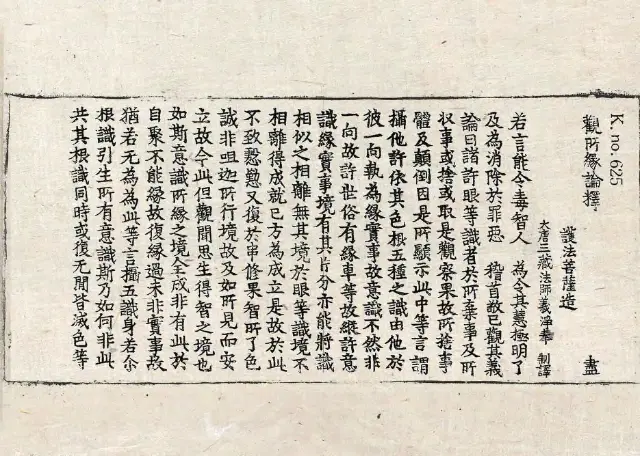 K. no. 625
觀所緣論釋 盡
護法菩薩造
大唐三藏法師義淨奉 制譯
若言能令毒智人 為令其慧極明了
及為消除於罪惡 稽首故已觀其義
論曰諸許眼等識者於所棄事及所
収事或捨或取是觀察果故所捨事
體及顛倒因是所顯示此中等言謂
攝他許依其色根五種之識由他於
彼一向執為緣實事故意識不然非
一向故許世俗有緣車等故縱許意
識緣實事境有其片分亦能將識
相似之相離無其境於眼等識境不
相離得成就已方為成立是故於此
不致慇懃又復於串修果智所了色
誠非呾迦所行境故及如所見而安
立故今此但觀聞思生得智之境也
如斯意識所緣之境全成非有此於
自聚不能緣故復緣過未非實事故
猶若无為為此等言攝五識身若尒
根識引生所有意識斯乃如何非等
共其根識同時或復无間皆滅色等